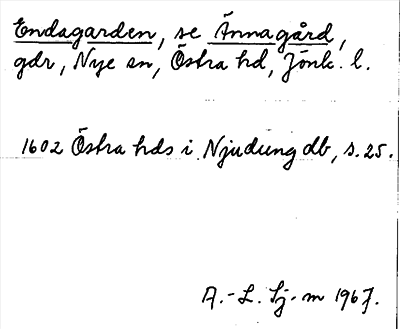 Endagarden, se Ännagård,
gdr, Nye sn, Östra hd, Jönk. l.
1602 Östra hds i Njudung db, s. 25.
A.-L. Lj-m 1967.